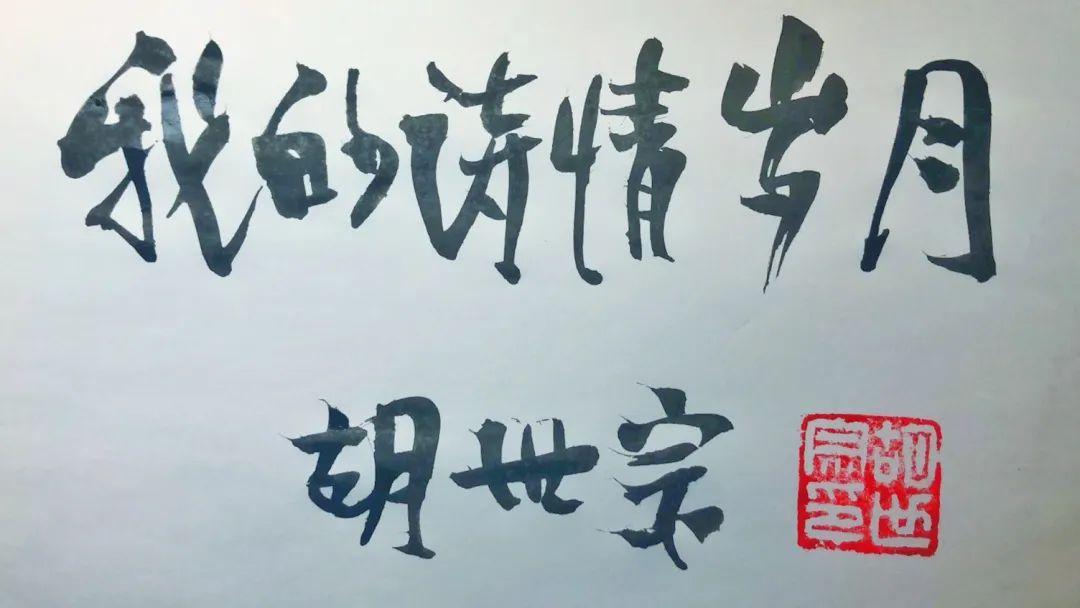 我的诗情岁月
胡世宗
胡世宗印